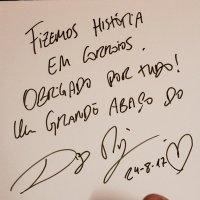 FIZEMOS HISTÓRIA
EM
OBRIGADO POR TUDO!
UM GRANDE ABAÇO DO
24-8-17